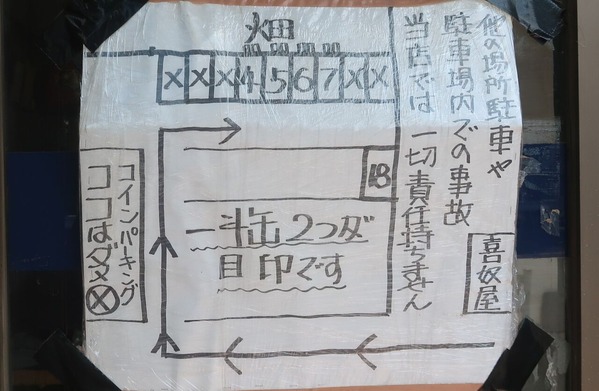 他の場所駐車や
駐車場内での事故
当店では一切責任持ちません
喜奴屋
畑
X X X 4 5 6 7 X X
18
一斗缶2つが
目印です
コインパキング
ココはダメⓍ